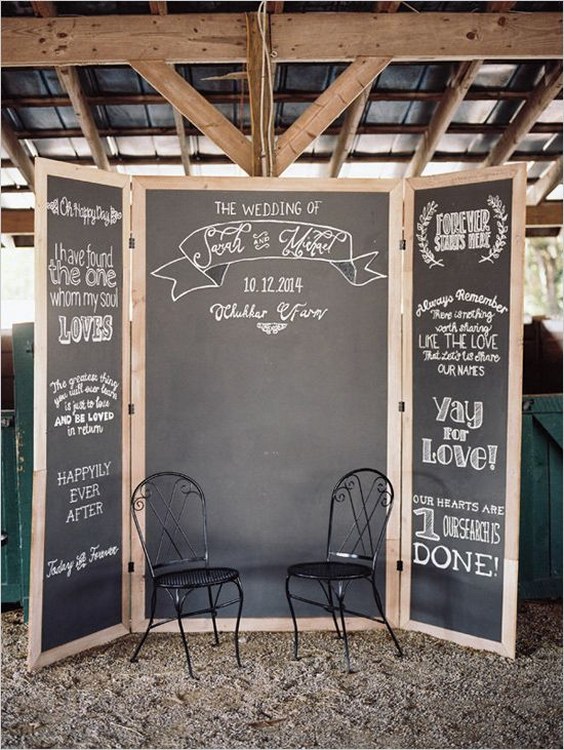 Oh Happy Day
I have found
the one
whom my soul
LOVES
The greatest thing
you will ever learn
is just to love
AND BE LOVED
in return
HAPPYILY
EVER
AFTER
Today & Forever
THE WEDDING OF
Sarah AND Michael
10.12.2014
Chukkar Farm
FOREVER
STARTS HERE
Always Remember
There is nothing
worth sharing
LIKE THE LOVE
That Let's Us Share
OUR NAMES
Yay
for
Love!
OUR HEARTS ARE
1 OUR SEARCH IS
DONE!